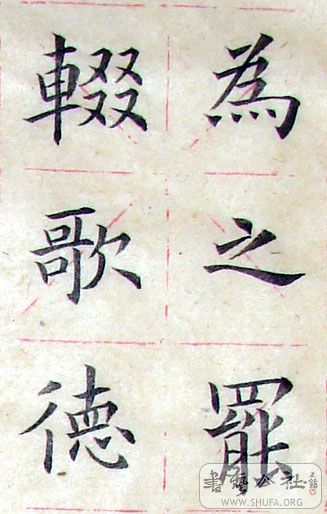 為之罷
輟歌德
書藝公社
WWW.SHUFA.ORG